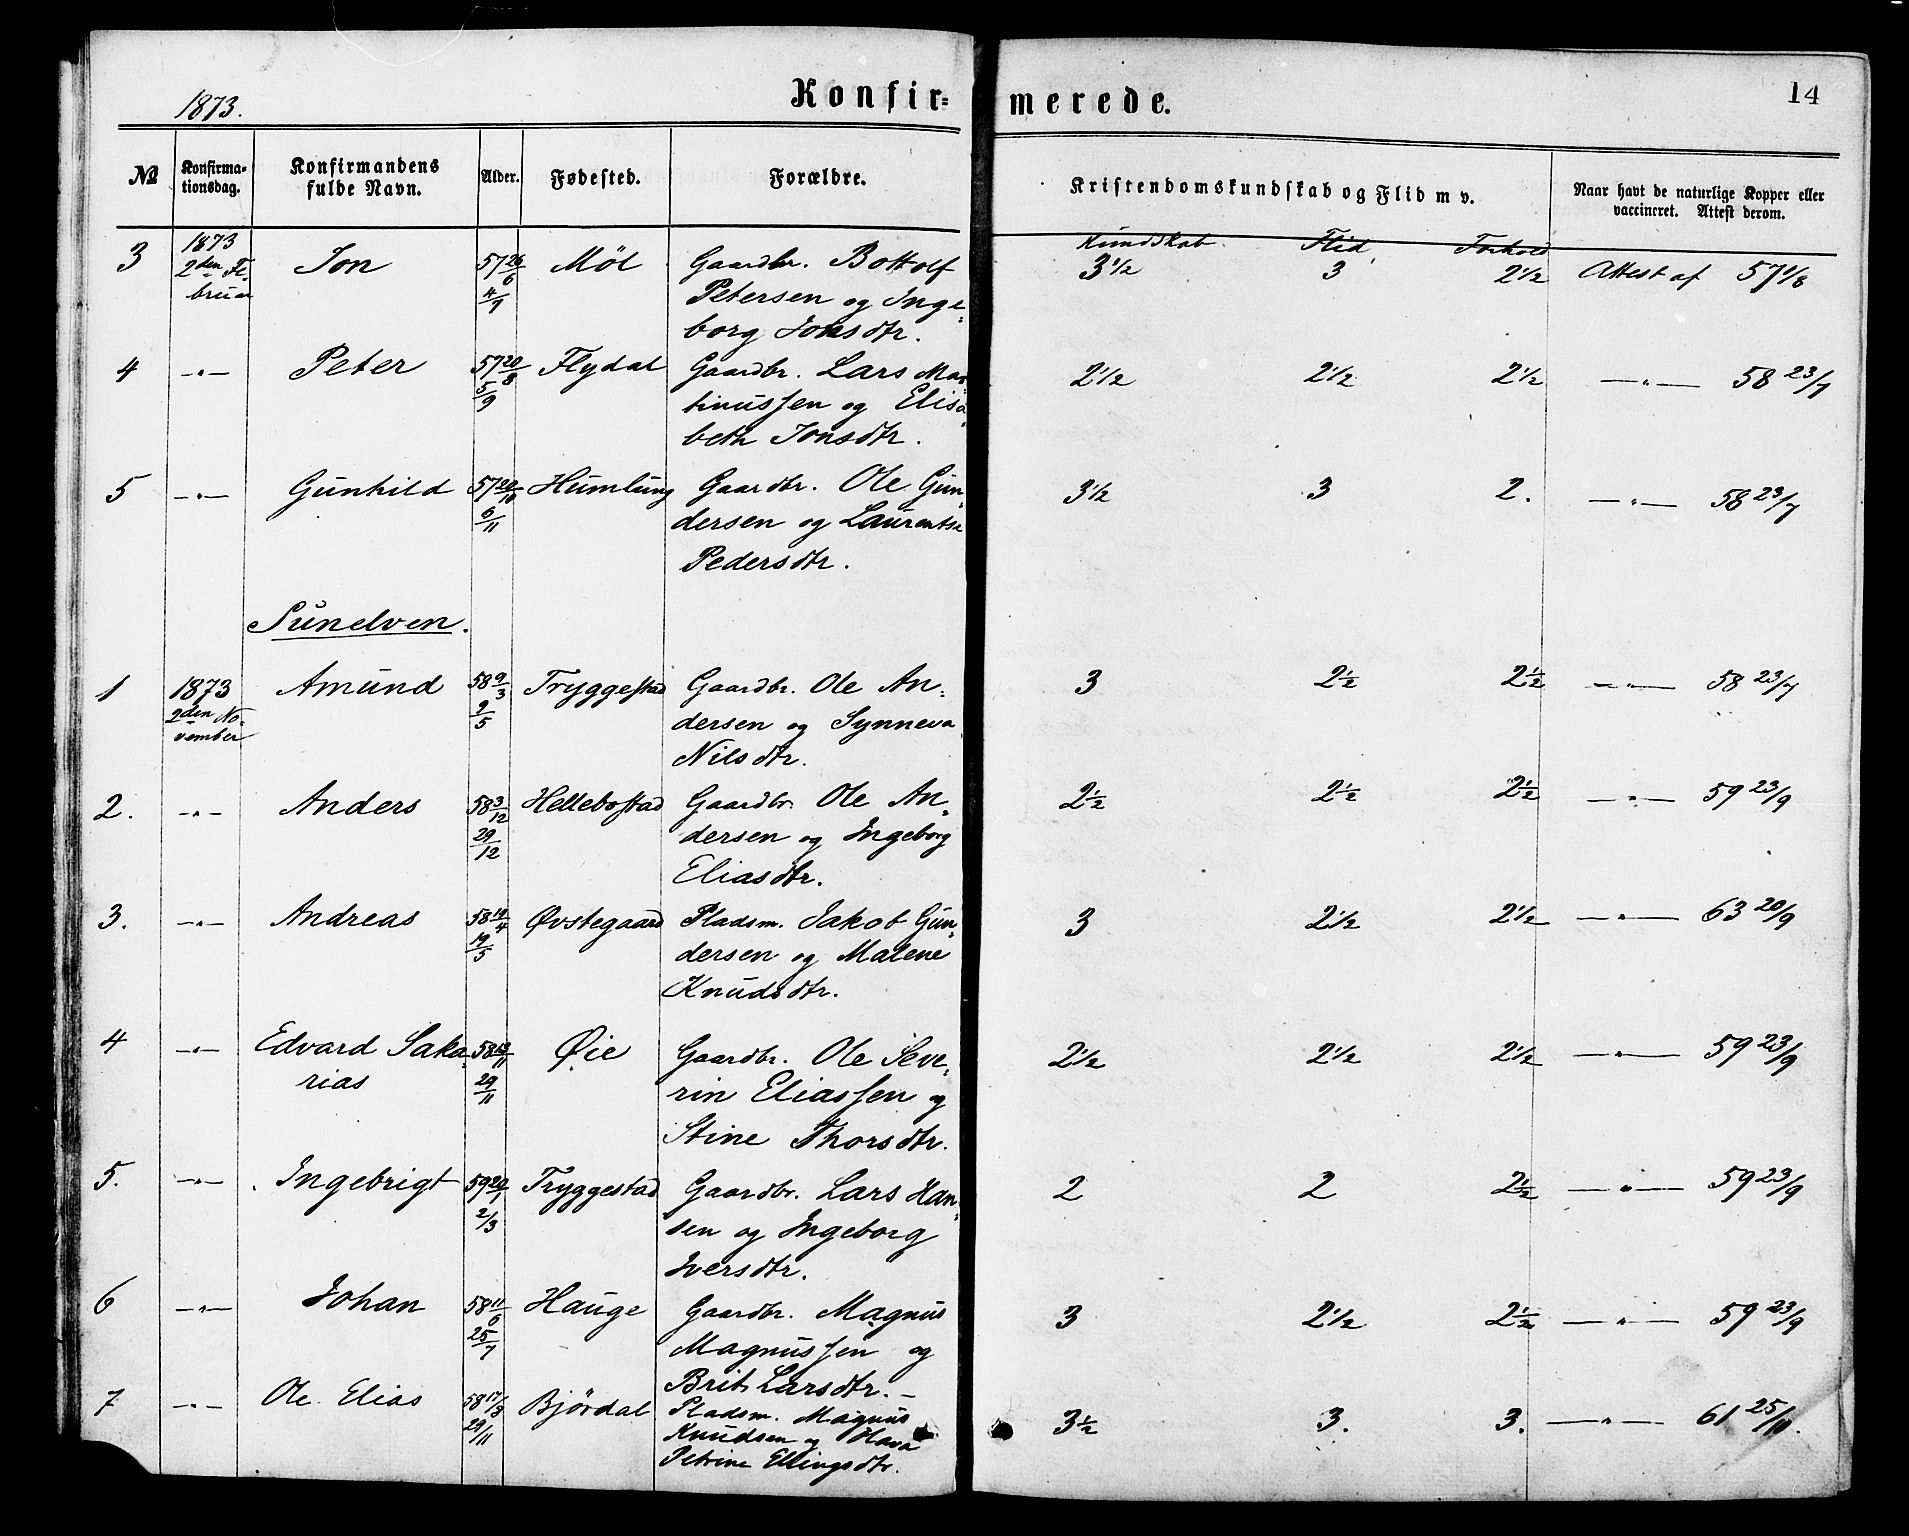 1873.
Konfir=
merede.
14
No
Konfirma-
tionsdag.
Konfirmandens
fulde Navn.
Alder.
Fødested.
Forældre.
Kristendomskundskab og Flid m v.
Naar havt de naturlige Kopper eller
vaccineret. Attest derom.
Kundskab Flid Forhold
3 1873 2den Fe-
bruar
Jon 57 26/6 Möl Gaardbr. Bottolf 3 1/2 3 2 1/2 Attest af 57
Petersen og Inge-
borg Jonsdtr.
4 -"- Peter 57 20/8 Flydal Gaardbr. Lars Mar- 2 1/2 2 1/2 2 1/2 -"- 58 23/7
5/9 tinussen og Elisa-
beth Jonsdtr.
5 -"- Gunhild 57 20/10 Humlung Gaardbr. Ole Gun- 3 1/2 3 2. -"- 58 23/7
6/11 dersen og Laurentse
Pedersdtr.
Sunelven.
1 1873 Amund 58 9/3 Tryggestad Gaardbr. Ole An- 3 2 1/2 2 1/2 -"- 58 23/7
9den No-
vember
9/5 dersen og Synneva
Nilsdtr.
2. -"- Anders 58 3/12 Hellebostad Gaardbr. Ole An- 2 1/2 2 1/2 2 1/2 -"- 59 23/9
29/12 dersen og Ingeborg
Eliasdtr.
3. -"- Andreas 58 14/4 Øvstegaard Pladsm. Jakob Gun- 3 2 1/2 2 1/2 -"- 63 20/9
19/5 dersen og Malene
Knudsdtr.
4 -"- Edvard Saka- 58 Øie Gaardbr. Ole Seve- 2 1/2 2 1/2 2 1/2 -"- 59 23/9
rias 29/11 rin Eliassen og
Stine Thorsdtr.
5. -"- Ingebrigt 59 20/1 Tryggestad Gaardbr. Lars Han- 2 2 2 1/2 -"- 59 23/9
2/3 sen og Ingeborg
Iversdtr.
6 -"- Johan 58 11/6 Hauge Gaardbr. Magnus 3 2 1/2 2 1/2 -"- 59 23/9
25/7 Magnussen og
Brit Larsdtr. -
7 -"- Ole Elias 58 17/8 Bjørdal Pladsm. Magnus 3 1/2 3. 3. -"- 61 25/11.
29/11 Knudsen og
Petrine Ellingsdtr.